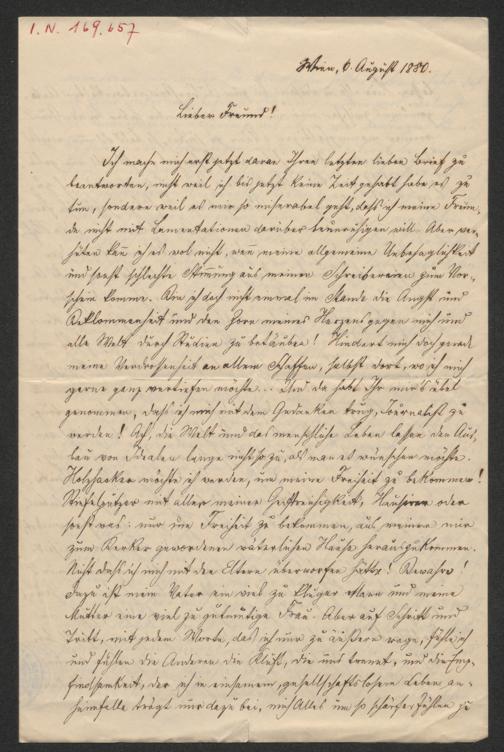 I.N. 169.657
Wien, 6. August 1880.
Lieber Freund!
Ich mache mich erst jetzt daran Ihren letzten lieben Brief zu
beantworten, nicht weil ich bis jetzt keine Zeit gehabt habe es zu
tun, sondern weil es mir so miserabel geht, daß ich meine Freun-
de nicht mit Lamentationen darüber beunruhigen will. Aber ver-
hüten kann ich es wol nicht, wenn meine allgemeine Unbehaglichkeit
und sonst schlechte Stimmung aus meinen Schreibereien zum Vor-
schein komme. Bin ich doch nicht einmal im Stande die Angst und
Beklommenheit und den Zorn meines Herzens gegen mich und
alle Welt durch Studien zu betäuben! Hindert mich doch gerade
meine Verdrossenheit an allem Schaffen, selbst dort, wo ich mich
gerne ganz vertiefen möchte... Und da habt Ihr mir's übel
genommen, daß ich mich mit dem Gedanken trug, Journalist zu
werden! Ach, die Welt und das menschliche Leben lassen den Aus-
bau von Idealen lange nicht so zu, als man es wünschen möchte.
Holzhacker möchte ich werden, um meine Freiheit zu bekommen!
Stiefelputzer mit aller meiner Geistreichigkeit, Hausirer oder
sonst was: nur um Freiheit zu bekommen, aus meinem mir
zum Kerker gewordenen väterlichen Hause herauszukommen.
Nicht daß ich mich mit den Eltern überworfen hätte! Bewahre!
Dazu ist mein Vater ein viel zu kluger Mann und meine
Mutter eine viel zu gutmütige Frau. Aber auf Schritt und
Tritt, mit jedem Worte, das ich nur zu äußern wage, fühle ich
und fühlen die Anderen die Kluft, die uns trennt, und die Emp-
findsamkeit, der ich in einsamem, gesellschaftslosem Leben an-
heimfalle trägt nur dazu bei, mich Alles um so schärfer fühlen zu